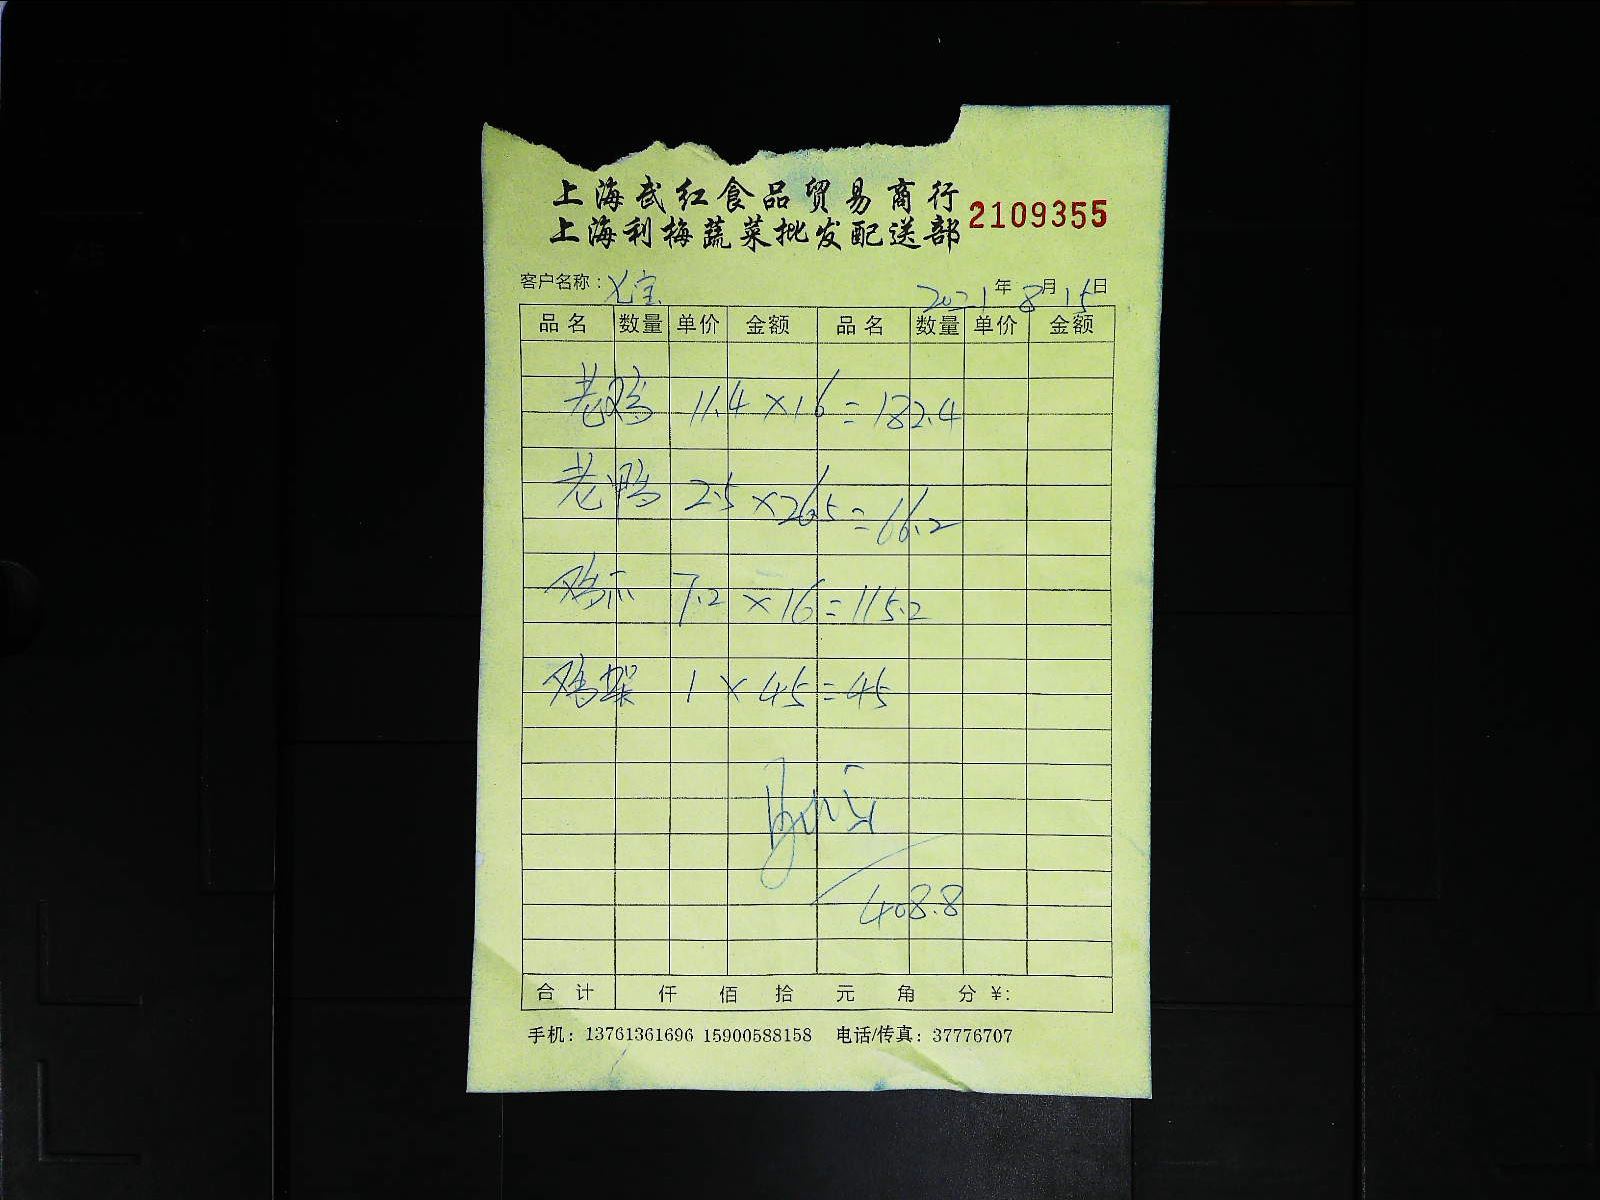 上海武红食品贸易商行
上海利梅蔬菜批发配送部 2109355
客户名称：宝 2021年8月15日
品名 数量 单价 金额 品名 数量 单价 金额
老鸡 11.4×16=182.4
老鸭 2.5×26.5=66.2
鸡 7.2×16=115.2
鸡架 1×45=45
408.8
合计 仟 佰 拾 元 角 分 ¥:
手机：13761361696 15900588158 电话/传真：37776707